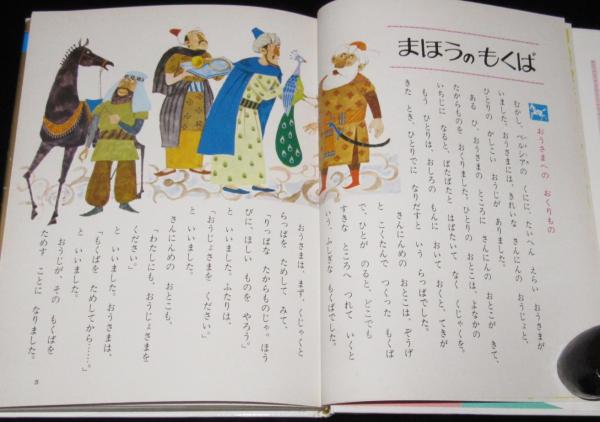 まほうのもくば
おうさまへの おくりもの
むかし、ペルシアの くにに、たいへん えらい おうさまが
いました。おうさまには、きれいな さんにんの おうじょと、
ひとりの かしこい おうじが ありました。
ある ひ、おうさまの ところに さんにんの おとこが きて、
たからものを おくりました。ひとりの おとこは、よなかの
いちじに なると、ぱたぱたと はばたいて なく くじゃくを。
もう ひとりは、おしろの もんに おいて おくと、てきが
きた とき、ひとりでに なりだすと いう らっぱでした。
さんにんめの おとこは、ぞうげ
と こくたんで つくった もくば
で、ひとが のると、どこでも
すきな ところへ つれて いくと
いう、ふしぎな もくばでした。
おうさまは、まず、くじゃくと
らっぱを ためして みて、
「りっぱな たからものじゃ。ほう
びに、ほしい ものを やろう。」
と いいました。ふたりは、
「おうじょさまを ください。」
と いいました。
さんにんめの おとこも、
「わたしにも、おうじょさまを
ください。」
と いいました。おうさまは、
「もくばを ためしてから……。」
と いいました。
おうじが、その もくばを
ためす ことに なりました。